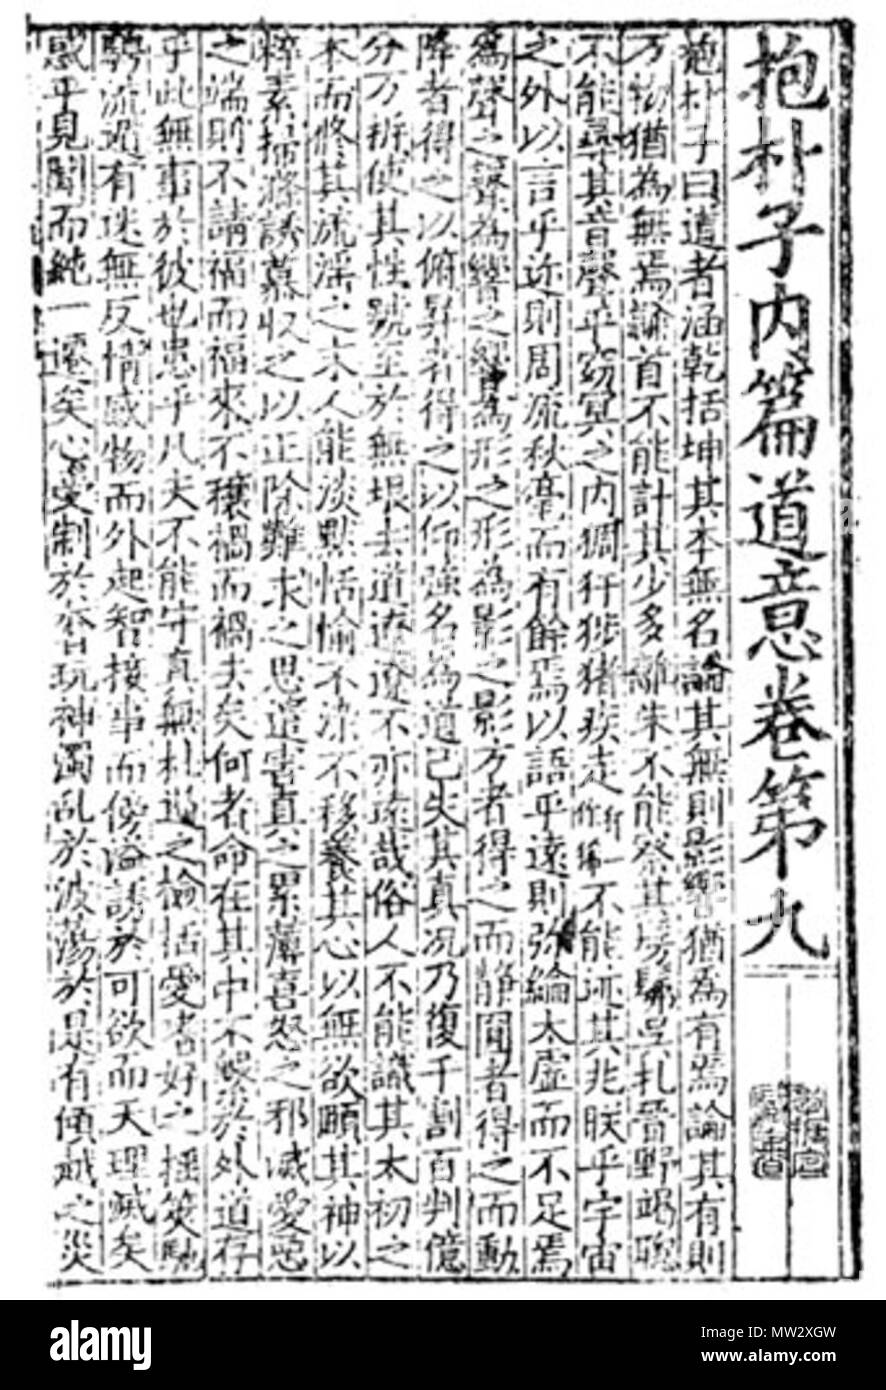 抱朴子内篇道意卷第九
抱朴子曰道者涵乾括坤其本無名論其無則影響猶為有焉論其有則
万物猶為無焉隸首不能計其少多離朱不能察其髣髴吳札晉野竭聰
不能尋其音聲乎窈冥之内犴猪疾走不能迹其兆朕乎宇宙
之外以言乎迩則周流秋毫而有餘焉以語乎遠則弥綸太虛而不足焉
為聲之聲為響之響為形之形為影之影方者得之而静圎者得之而動
降者得之以俯昇者得之以仰強名為道已失其真况乃復千割百判億
分万析使其性號至於無垠去道遼遼不亦遠哉俗人不能識其太初之
本而修其流淫之末人能淡默恬愉不染不移養其心以無欲頤其神以
粹素掃滌誘慕収之以正除難求之思遣害真之累薄喜怒之邪滅愛惡
之端則不請福而福來不禳禍而禍去矣何者命在其中不繫於外道存
乎此無事於彼也患乎凡夫不能守真無杜遏之檢括愛嗜好之摇奨馳
騁流遁有迷無反情感物而外起智接事而傍溢誘於可欲而天理滅矣
惑乎見聞而純一遷矣心受制於奢玩神濁乱於波蕩於是有傾越之災
alamy
Image ID: MW2XGW
www.alamy.com